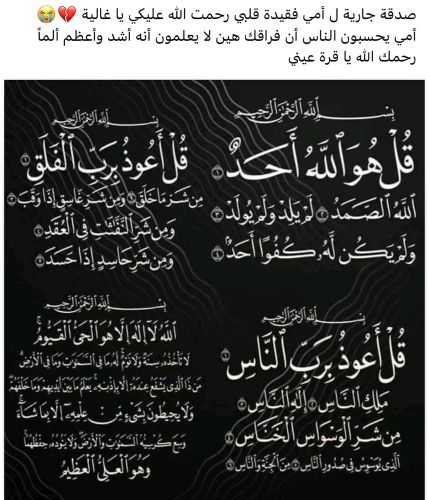 صدقة جارية ل أمي فقيدة قلبي رحمت الله عليكي يا غالية 💔😭
أمي يحسبون الناس أن فراقك هين لا يعلمون أنه أشد وأعظم ألماً
رحمك الله يا قرة عيني
بِسْمِ ٱللَّهِ ٱلرَّحْمَٰنِ ٱلرَّحِيمِ
قُلْ هُوَ ٱللَّهُ أَحَدٌ ١
ٱللَّهُ ٱلصَّمَدُ ٢ لَمْ يَلِدْ وَلَمْ يُولَدْ ٣
وَلَمْ يَكُن لَّهُۥ كُفُوًا أَحَدٌۢ ٤
بِسْمِ ٱللَّهِ ٱلرَّحْمَٰنِ ٱلرَّحِيمِ
قُلْ أَعُوذُ بِرَبِّ ٱلْفَلَقِ ١
مِن شَرِّ مَا خَلَقَ ٢ وَمِن شَرِّ غَاسِقٍ إِذَا وَقَبَ ٣
وَمِن شَرِّ ٱلنَّفَّٰثَٰتِ فِى ٱلْعُقَدِ ٤
وَمِن شَرِّ حَاسِدٍ إِذَا حَسَدَ ٥
بِسْمِ ٱللَّهِ ٱلرَّحْمَٰنِ ٱلرَّحِيمِ
قُلْ أَعُوذُ بِرَبِّ ٱلنَّاسِ ١
مَلِكِ ٱلنَّاسِ ٢ إِلَٰهِ ٱلنَّاسِ ٣
مِن شَرِّ ٱلْوَسْوَاسِ ٱلْخَنَّاسِ ٤
ٱلَّذِى يُوَسْوِسُ فِى صُدُورِ ٱلنَّاسِ ٥ مِنَ ٱلْجِنَّةِ وَٱلنَّاسِ ٦
بِسْمِ ٱللَّهِ ٱلرَّحْمَٰنِ ٱلرَّحِيمِ
ٱللَّهُ لَآ إِلَٰهَ إِلَّا هُوَ ٱلْحَىُّ ٱلْقَيُّومُ
لَا تَأْخُذُهُۥ سِنَةٌ وَلَا نَوْمٌ لَّهُۥ مَا فِى ٱلسَّمَٰوَٰتِ وَمَا فِى ٱلْأَرْضِ
مَن ذَا ٱلَّذِى يَشْفَعُ عِندَهُۥٓ إِلَّا بِإِذْنِهِۦ يَعْلَمُ مَا بَيْنَ أَيْدِيهِمْ وَمَا خَلْفَهُمْ
وَلَا يُحِيطُونَ بِشَىْءٍ مِّنْ عِلْمِهِۦٓ إِلَّا بِمَا شَآءَ
وَسِعَ كُرْسِيُّهُ ٱلسَّمَٰوَٰتِ وَٱلْأَرْضَ وَلَا يَـُٔودُهُۥ حِفْظُهُمَا
وَهُوَ ٱلْعَلِىُّ ٱلْعَظِيمُ